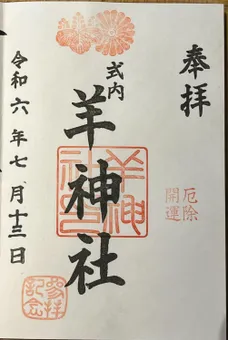 奉拝
厄除
開運
式内
羊神社
羊神社
令和六年七月十三日
参拝
記念